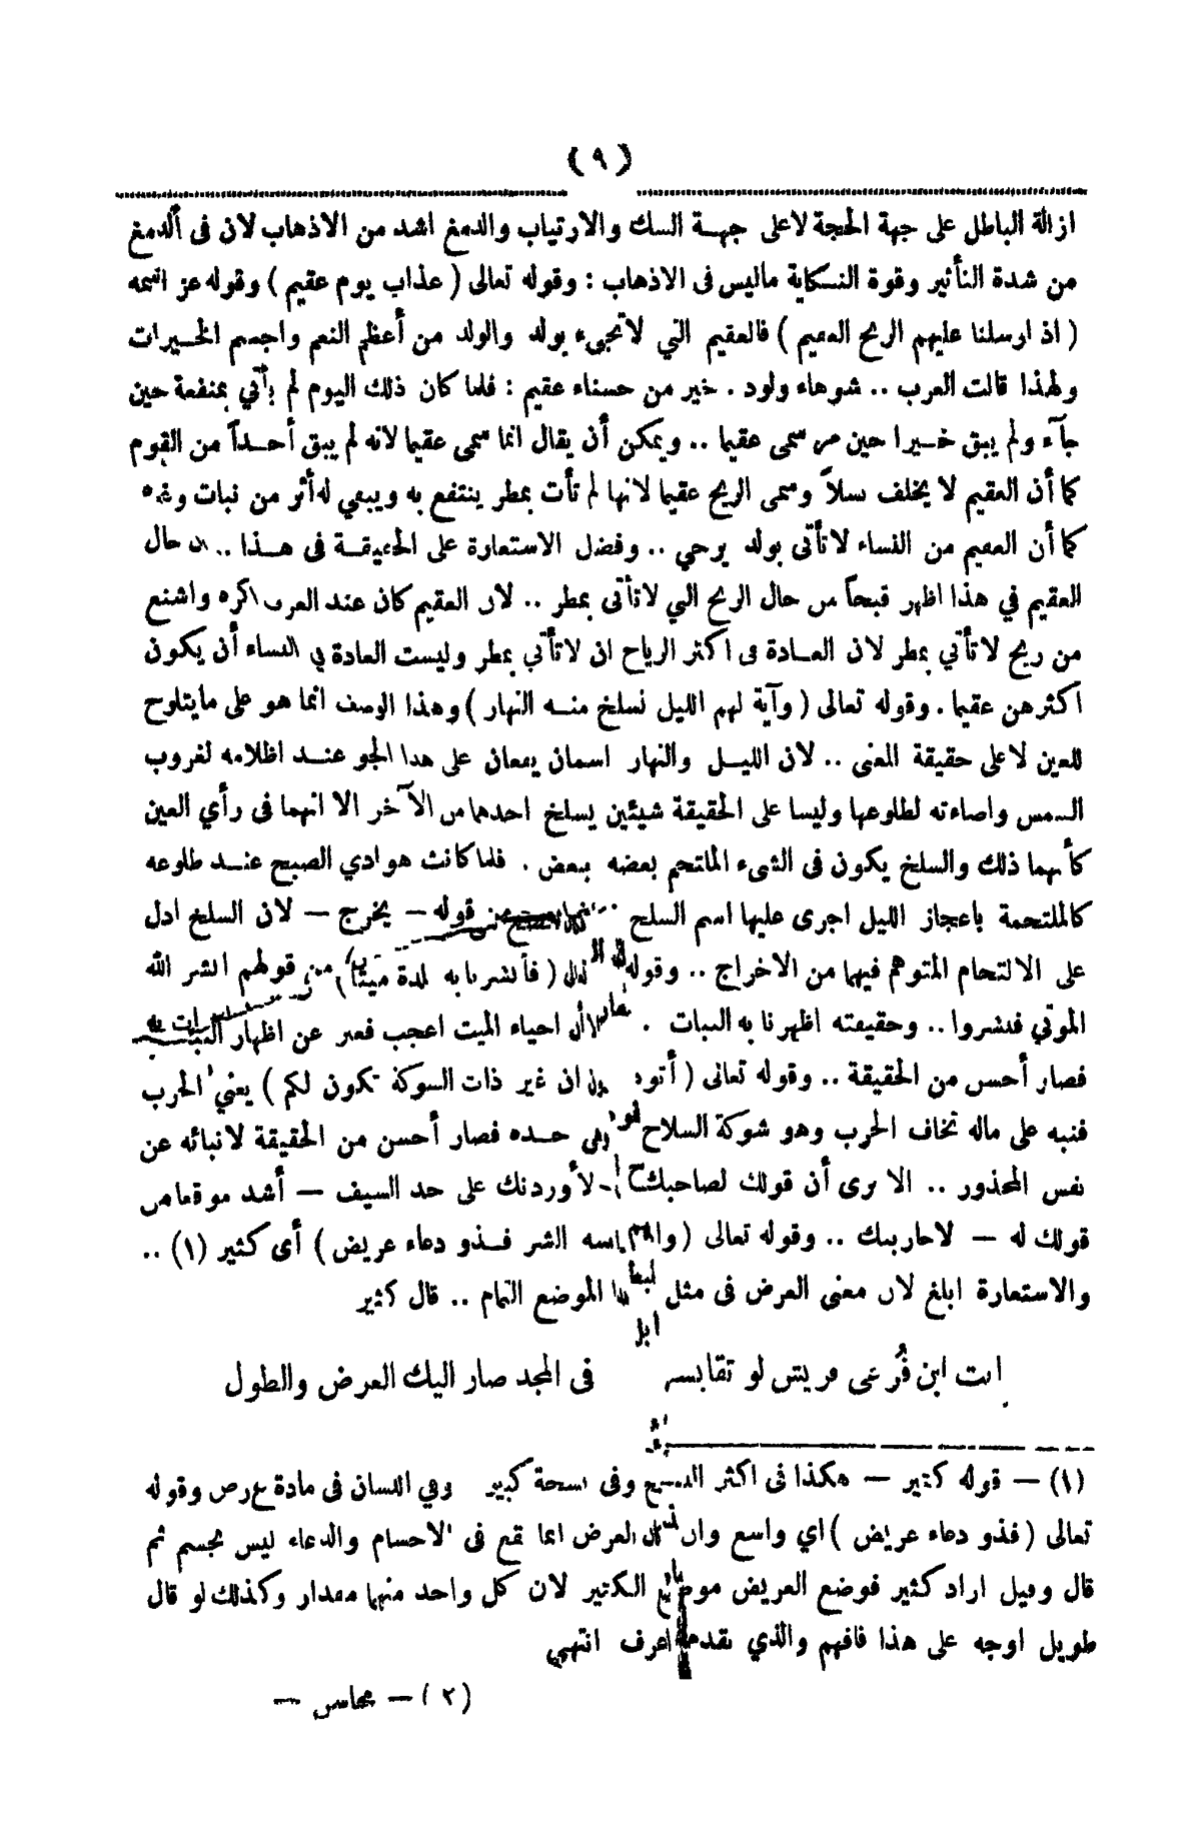 ( ٩ )
ازالة الباطل على جهة الحجة لاعلى جهة الشك والارتياب والدمغ اشد من الاذهاب لان فى ألدمغ
من شدة التأثير وقوة النكاية ماليس فى الاذهاب : وقوله تعالى ( عذاب يوم عقيم ) وقوله عز اسمه
( اذ ارسلنا عليهم الريح العقيم ) فالعقيم التي لاتجيء بولد والولد من أعظم النعم واجسم الخيرات
ولهذا قالت العرب .. شوهاء ولود . خير من حسناء عقيم : فلما كان ذلك اليوم لم يأتي بمنفعة حين
جآء ولم يبق خيرا حين مر سمى عقيما .. ويمكن أن يقال انما سمى عقيما لانه لم يبق أحداً من القوم
كما أن العقيم لا يخلف نسلاً وسمى الريح عقيما لانها لم تأت بمطر ينتفع به ويبقي له أثر من نبات وغيره
كما أن العقيم من النساء لاتأتى بولد يرجي .. وفضل الاستعارة على الحقيقة فى هذا .. ان حال
العقيم في هذا اظهر قبحاً من حال الريح التي لاتأتى بمطر .. لان العقيم كان عند العرب اكره واشنع
من ريح لاتأتي بمطر لان العادة فى اكثر الرياح ان لاتأتي بمطر وليست العادة في النساء أن يكون
اكثرهن عقيما . وقوله تعالى ( وآية لهم الليل نسلخ منه النهار ) وهذا الوصف انما هو على مايتلوح
للعين لاعلى حقيقة المعنى .. لان الليل والنهار اسمان يقعان على هذا الجو عند اظلامه لغروب
الشمس واضاءته لطلوعها وليسا على الحقيقة شيئين يسلخ احدهما من الآخر الا انهما فى رأي العين
كأنهما ذلك والسلخ يكون فى الشىء الملتحم بعضه ببعض . فلما كانت هوادي الصبح عند طلوعه
كالملتحمة باعجاز الليل اجرى عليها اسم السلخ من قوله — يخرج — لان السلخ ادل
على الالتحام المتوهم فيهما من الاخراج .. وقوله تعالى ( فأنشرنا به بلدة ميتا ) من قولهم انشر الله
الموتي فنشروا .. وحقيقته اظهرنا به النبات . الا أن احياء الميت اعجب فعبر عن اظهار النبات به
فصار أحسن من الحقيقة .. وقوله تعالى ( أتودون ان غير ذات الشوكة تكون لكم ) يعني الحرب
فنبه على ماله تخاف الحرب وهو شوكة السلاح وهى حده فصار أحسن من الحقيقة لانبائه عن
نفس المحذور .. الا ترى أن قولك لصاحبك — لأوردنك على حد السيف — أشد موقعا من
قولك له — لاحاربنك .. وقوله تعالى ( واذا مسه الشر فذو دعاء عريض ) أى كثير (١) ..
والاستعارة ابلغ لان معنى العرض فى مثل هذا الموضع التمام .. قال كثير
انت ابن فُرعى قريش لو تقايسه فى المجد صار اليك العرض والطول
(١) — قوله كثير — هكذا فى اكثر النسخ وفى نسخة كبير وفي اللسان فى مادة ع رض وقوله
تعالى ( فذو دعاء عريض ) اي واسع وان كان العرض انما يقع فى الاجسام والدعاء ليس بجسم ثم
قال وقيل اراد كثير فوضع العريض موضع الكثير لان كل واحد منهما مقدار وكذلك لو قال
طويل اوجه على هذا فافهم والذي تقدم اعرف انتهى
( ٢ ) — محاسن —